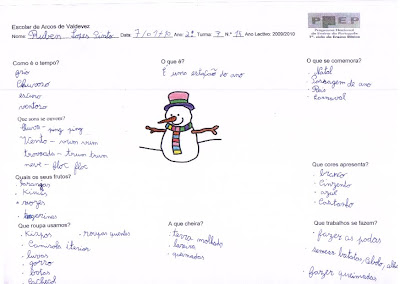 Escolar de Arcos de Valdevez
Nome: Ruben Lopes Pinto Data 7/01/10 Ano: 2º Turma: 7 N.º 14 Ano Lectivo: 2009/2010
PNEP
Programa Nacional
de Ensino do Português
1º ciclo do Ensino Básico
Como é o tempo?
frio
chuvoso
ventoso
Que sons se ouvem?
chuva - ping ping
Vento - vum vum
trovoada - trum trum
neve - floc floc
Quais os seus frutos?
laranjas
Kiwis
nozes
Que roupa usamos?
Kispos
roupas quentes
luvas
gorro
botas
O que é?
É uma estação do ano
A que cheira?
terra molhada
lareira
queimadas
O que se comemora?
Natal
Passagem de ano
Reis
Carnaval
Que cores apresenta?
branco
Cinzento
azul
Castanho
Que trabalhos se fazem?
fazer as podas
semear batatas,
fazer queimadas